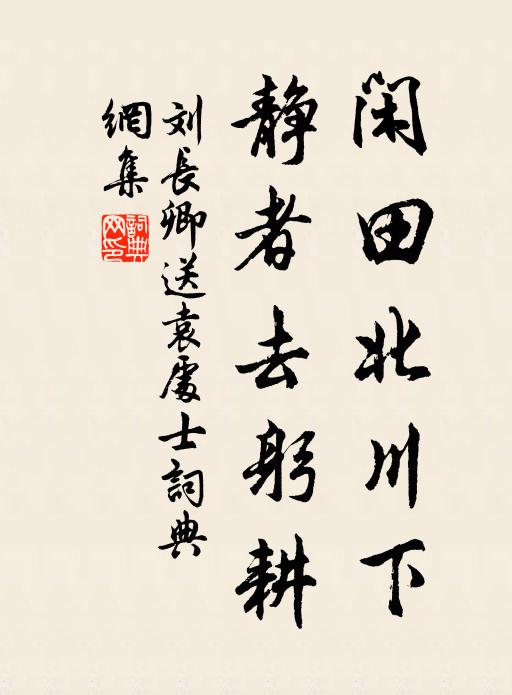 闲田北川下
静者去躬耕
刘長卿送袁處士詞典
網集
詞典
网印